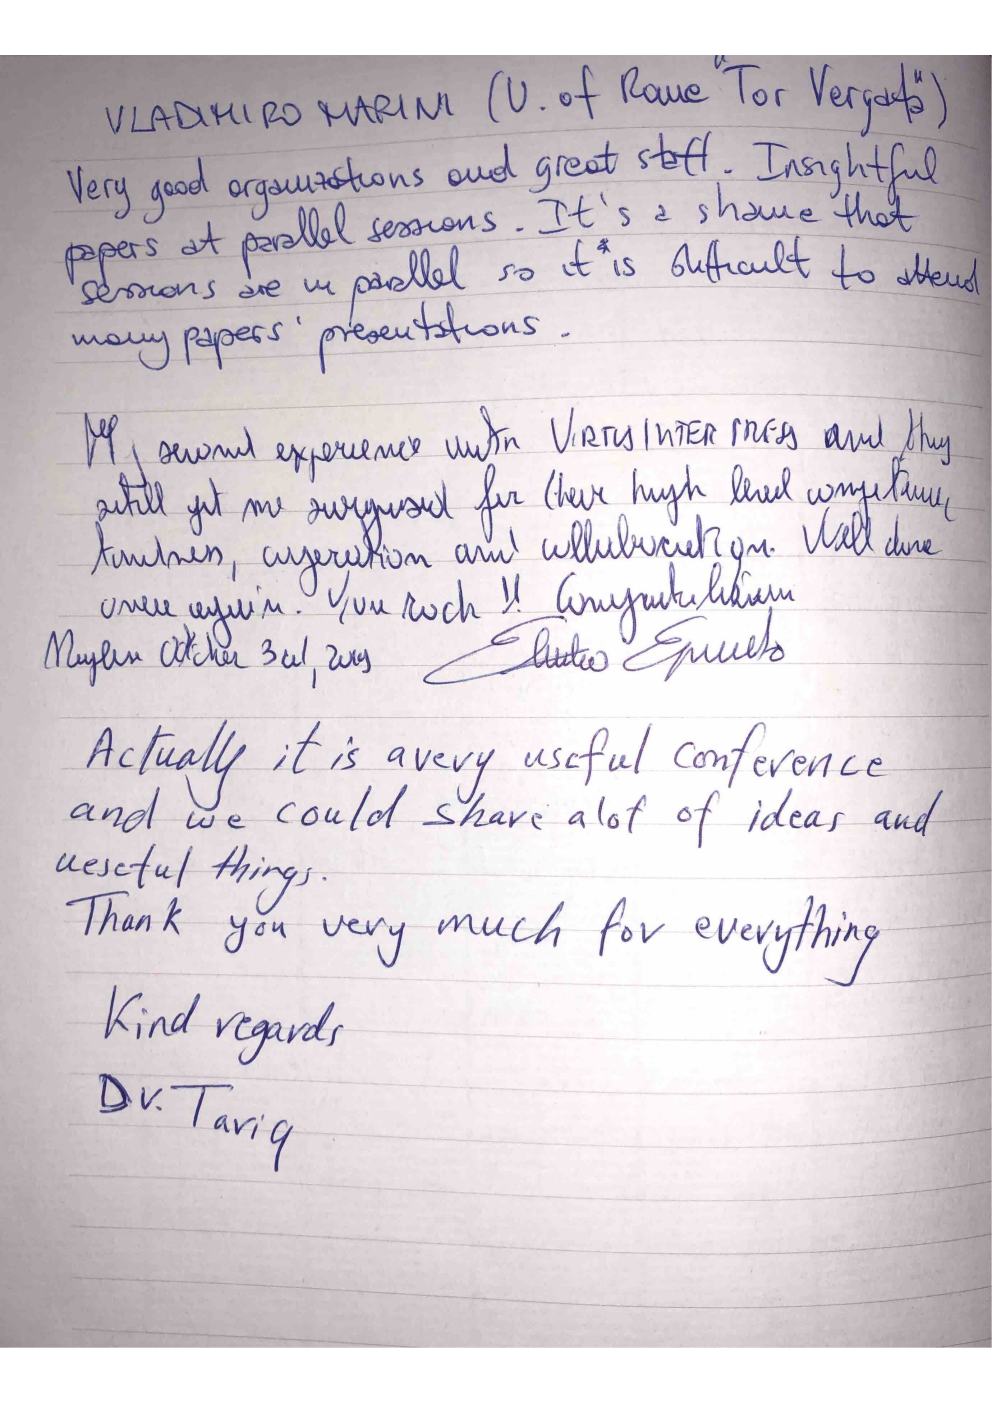 VLADIMIRO MARINI (U. of Rome "Tor Vergata")
Very good organizations and great staff. Insightful
papers at parallel sessions. It's a shame that
sessions are in parallel so it is difficult to attend
many papers' presentations.
My second experience with VIRTUS INTERPRESS and they
still get me surprised for their high level competence,
kindness, cooperation and collaboration. Well done
once again. You rock !! Congratulations
October 3rd, 2019
Actually it is avery useful conference
and we could share alot of ideas and
ueseful things.
Thank you very much for everything
Kind regards
Dr. Tariq